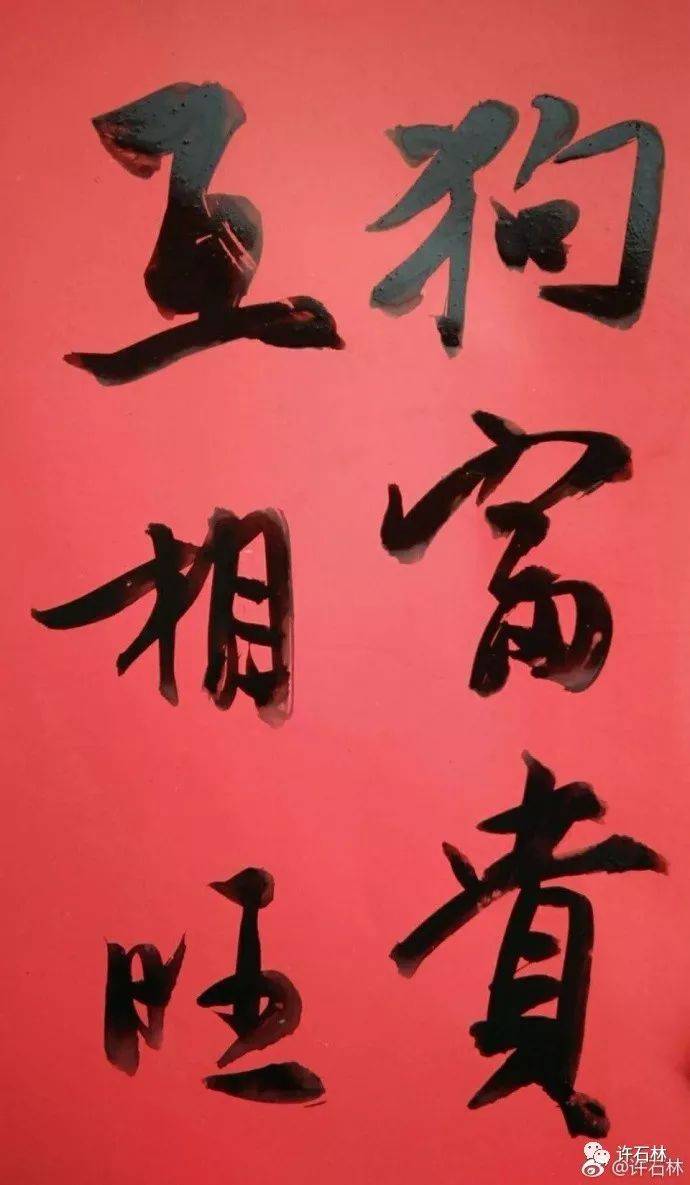 狗富貴
互相旺
许石林
@许石林